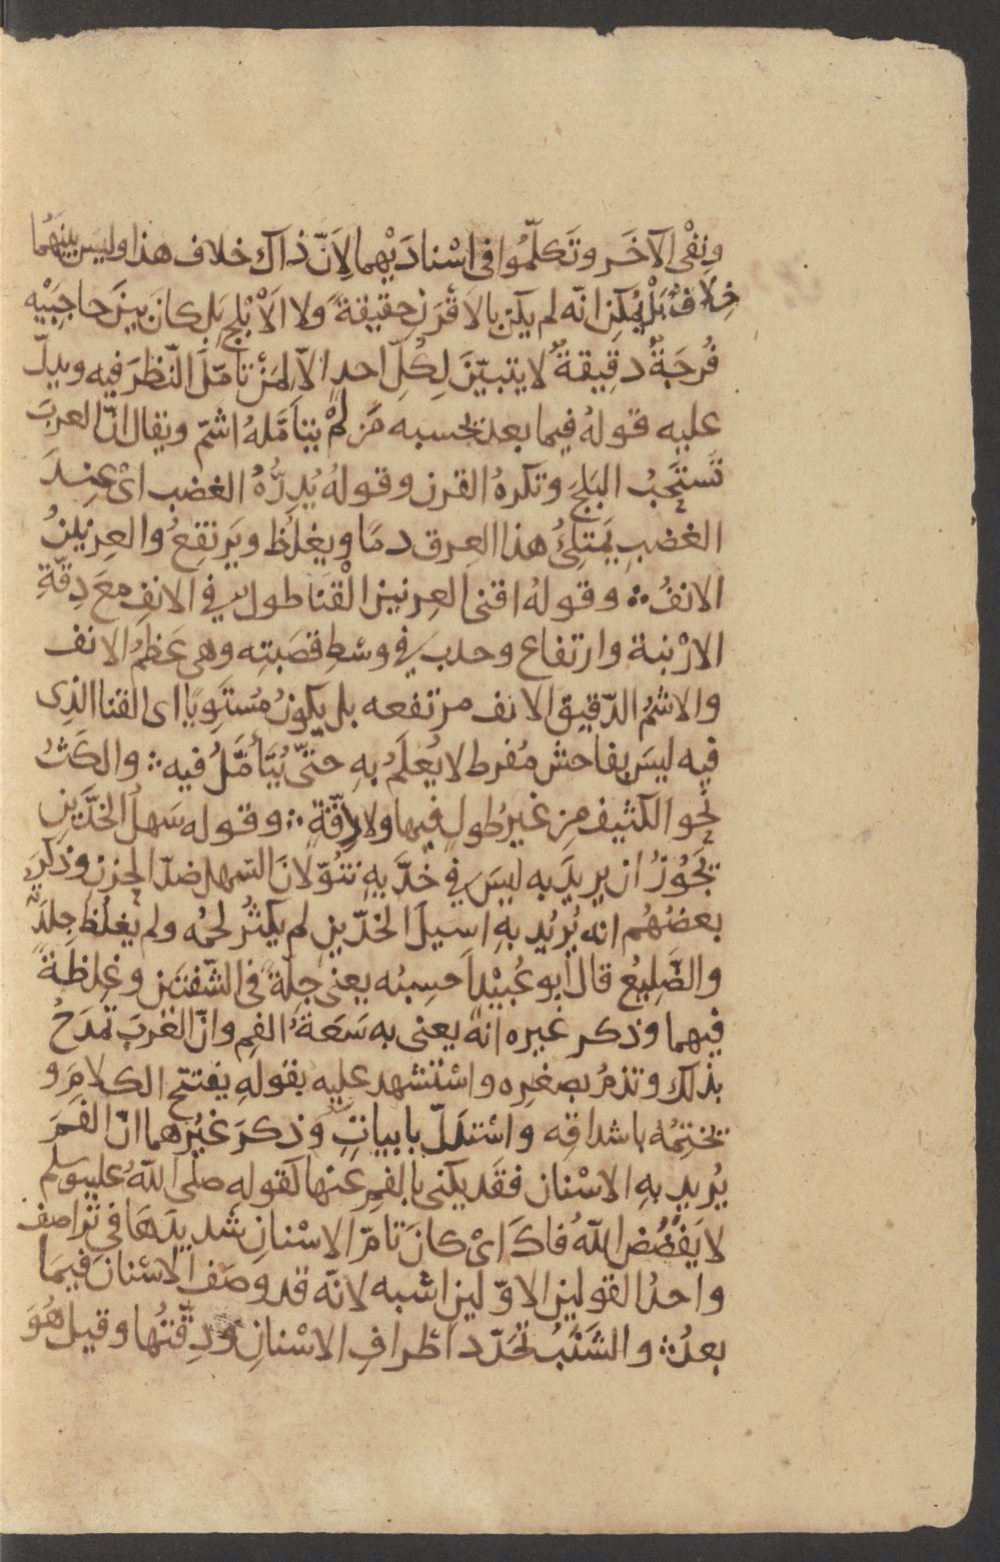 ونفْى الآخَر وتَكلّمُوا فى اسْنادَيْهما لاَنّ ذاك خلاف هذا وليس بينَهُما
خِلَافٌ بَلْ يُمْكِن انّه لم يكن بالاَقْرَنِ حقيقةً ولا الاَبْلَجِ بل كانَ بينَ حاجِبَيْه
فُرجَةٌ دقِيقةٌ لا يتبيّنَ لِكُلّ احدٍ الاّ لمَنْ تامّلَ النّظرَ فيه ويدلّ
عليه قولهُ فيما بعد يحسبه مَن لمْ يتأمّلهُ اشمّ ويقال انّ العربَ
تَستَحِبُ البَلجَ وتكرهُ القرن وقولهُ يُدِرُّهُ الغضب اىْ عِندَ
الغضبِ يَمتلِئُ هذا العِرق دمًا ويغلُظ ويَرتفِعُ والعِرنينُ
الانفُ ؞ وقولهُ اقنى العِرنين الْقَنا طول فى الانفِ معَ دِقّةِ
الارْنبة وارتفاع وحدب فى وسْطِ قصَبتِه وهى عَظمُ الانف
والاشمُّ الدّقيق الانف مرتفعه بل يكونُ مُستَوِيًا اى القنا الذى
فيه ليسَ بفاحش مُفرط لا يُعلَمُ بهِ حتّى يُتَأمَّلُ فيه ؞ والكَثُّ
نحو الكثيف مِن غيرِ طُولٍ فيها ولا رِقّةٍ ؞ وقوله سَهلُ الخدَّينِ
يَجُوزُ ان يريدَ به ليسَ فى خدَّيهِ نتُوّ لانَ السّهل ضدّ الحزن وذكرَ
بعضُهُم انه يُريْد بهِ اسيلَ الخدّينِ لم يكثُر لحمُه ولم يغلُظ جلدَه
والضّلِيعُ قال أبو عُبيْد اَحسِبُه يعنى جِلَّةً فى الشّفتَين وغِلظةً
فيهما وذكر غيره انهُ يعنى به سَعَةَ الفمِ وانّ العَربَ تمدَحُ
بذلك وتذمُ بصغِره واسْتشهد عليه بقولهِ يفتتح الكلامَ و
يختِمُهُ باشداقِه واسْتدلّ بابياتٍ وذكرَ غيْرُهما انّ الفمَ
يُريد بهِ الاسْنان فقَد يكنى بالفمِ عنها كقوله صلى اللّهُ عليه وسلم
لا يَفضُضِ اللّهُ فاكَ اىْ كانَ تامّ الاسْنانِ شديدَها فى تراصف
واحدُ القولين الاوّلين اشبه لانّه قد وصَف الاسْنانَ فيمَا
بعدُ ؞ والشَنَبُ تحَدّد اطرافِ الاسْنانِ ودِقّتُها وقيل هُوَ